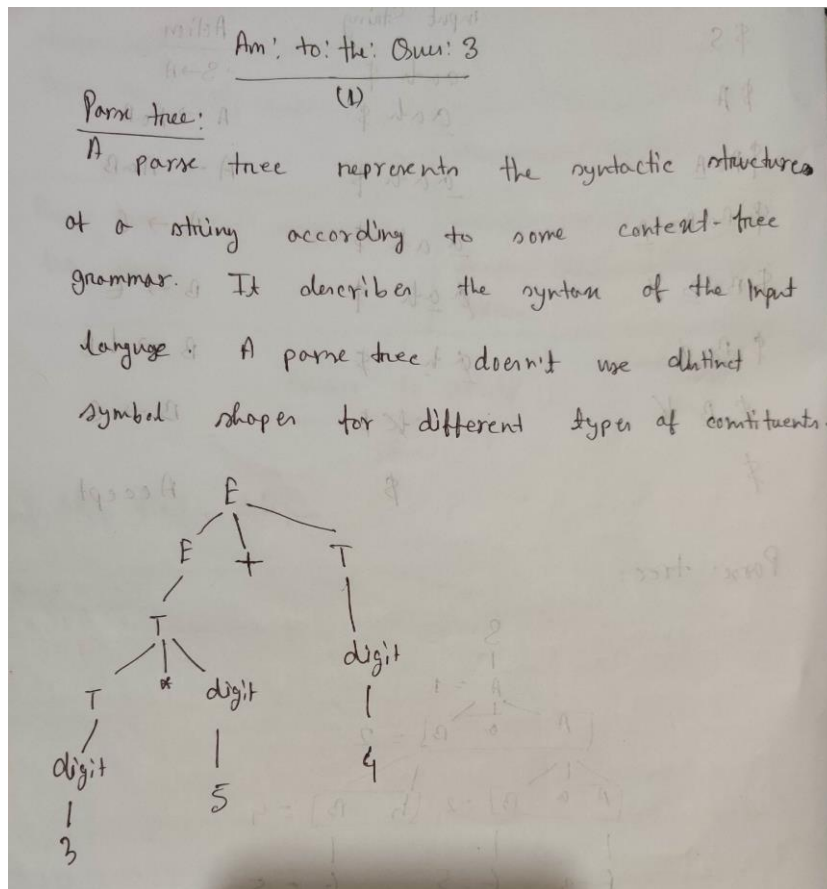 Ans: to: the: Ques: 3
(1)
Parse tree:
A parse tree represents the syntactic structures
of a string according to some context-free
grammar. It describes the syntax of the Input
languge. A parse tree doesn't use distinct
symbol shapes for different types of constituents.
E
E + T
T digit
T * digit
digit 5 4
3